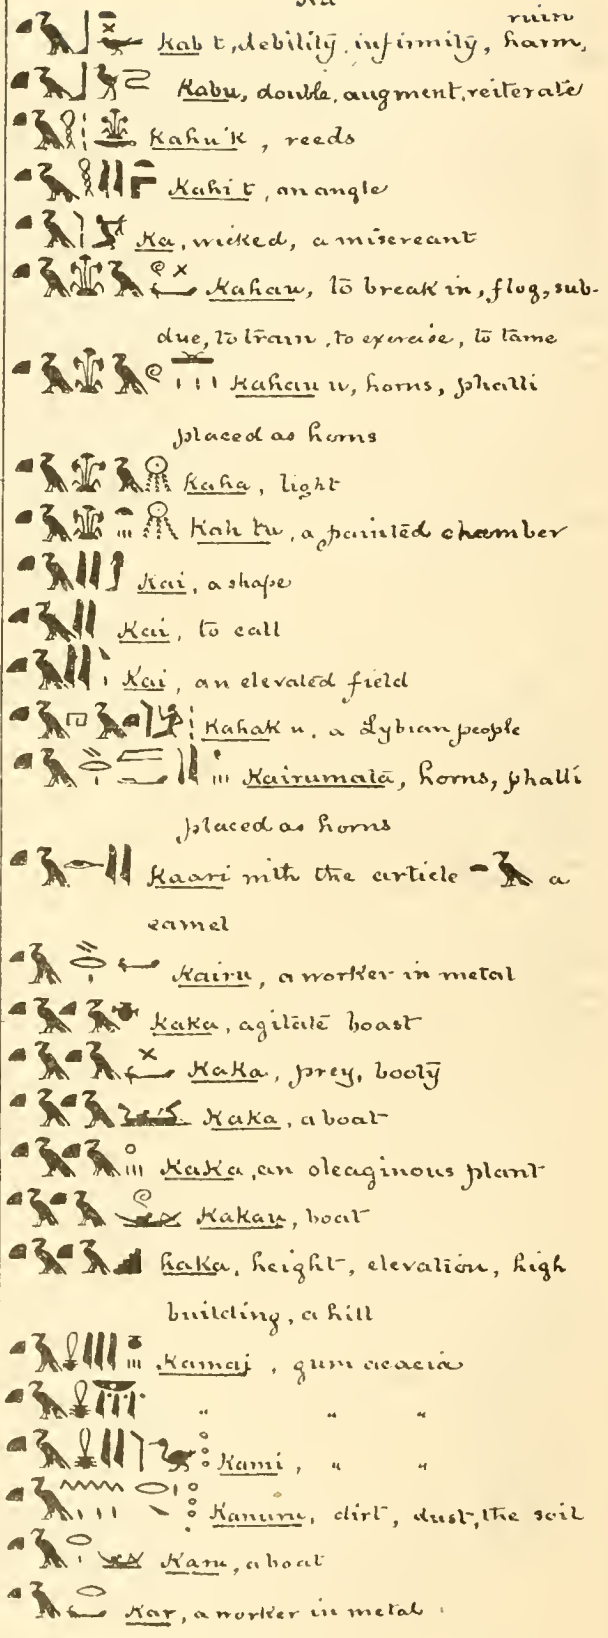 ruin
Kab t, debility, infirmity, harm,
Kabu, double, augment, reiterate
Kahu'k, reeds
Kahi t, an angle
Ka, wicked, a miscreant
Kahau, to break in, flog, sub-
due, to train, to exercise, to tame
Kahau u, horns, phalli
placed as horns
Kaha, light
Kah tu, a painted chamber
Kai, a shape
Kai, to call
Kai, an elevated field
Kahak u, a Lybian people
Kairumata, horns, phalli
placed as horns
Kaari with the article a
camel
Kairu, a worker in metal
Kaka, agitate boast
Kaka, prey, booty
Kaka, a boat
Kaka, an oleaginous plant
Kakau, boat
haka, height, elevation, high
building, a hill
Kamaj, gum acacia
" " "
Kami, " "
Kanuru, dirt, dust, the soil
Karu, a boat
Kar, a worker in metal